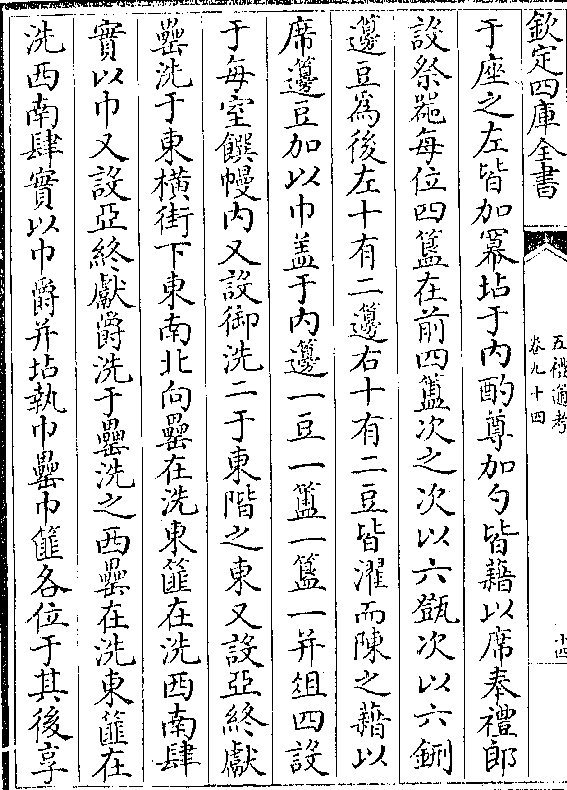 欽定四庫全書
五禮通考
卷九十四
十四
于座之左皆加冪坫于内酌尊加勺皆藉以席奉禮郎
設祭器每位四簋在前四簠次之次以六㽅次以六鉶
籩豆為後左十有二籩右十有二豆皆濯而陳之藉以
席籩豆加以巾盖于内籩一豆一簠一簋一并俎四設
于每室饌幔内又設御洗二于東階之東又設亞終獻
罍洗于東橫街下東南北向罍在洗東篚在洗西南肆
實以巾又設亞終獻爵洗于罍洗之西罍在洗東篚在
洗西南肆實以巾爵并坫執巾罍巾篚各位于其後享